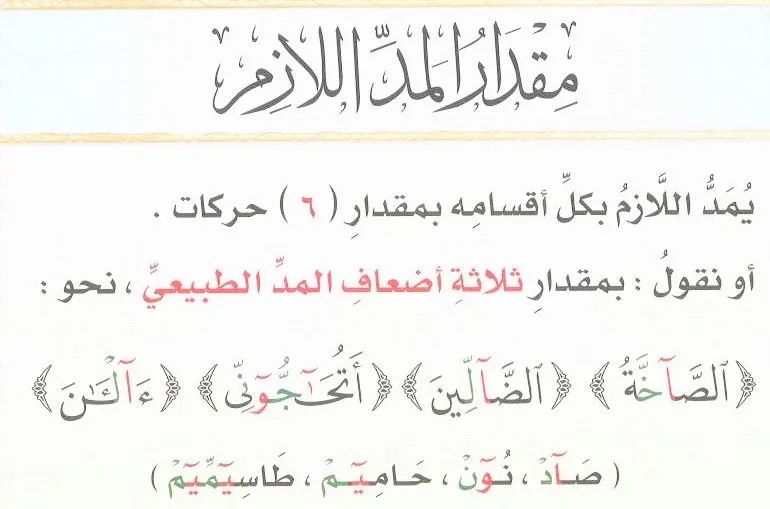 مِقْدَارُ المَدِّ اللازِمِ
يُمَدُّ اللَّازمُ بكلِّ أقسامِه بمقدارِ ( ٦ ) حركات .
أو نقولُ : بمقدارِ ثلاثةِ أضعافِ المدِّ الطبيعيِّ ، نحو :
﴿ٱلصَّآخَّةُ﴾ ﴿ٱلضَّآلِّينَ﴾ ﴿أَتُحَـٰٓجُّوٓنِّى﴾ ﴿ءَآلْـَٰٔنَ﴾
( صَـآدْ ، نُـوٓنْ ، حَـامِيٓـمْ ، طَاسِيٓمِّيٓمْ )